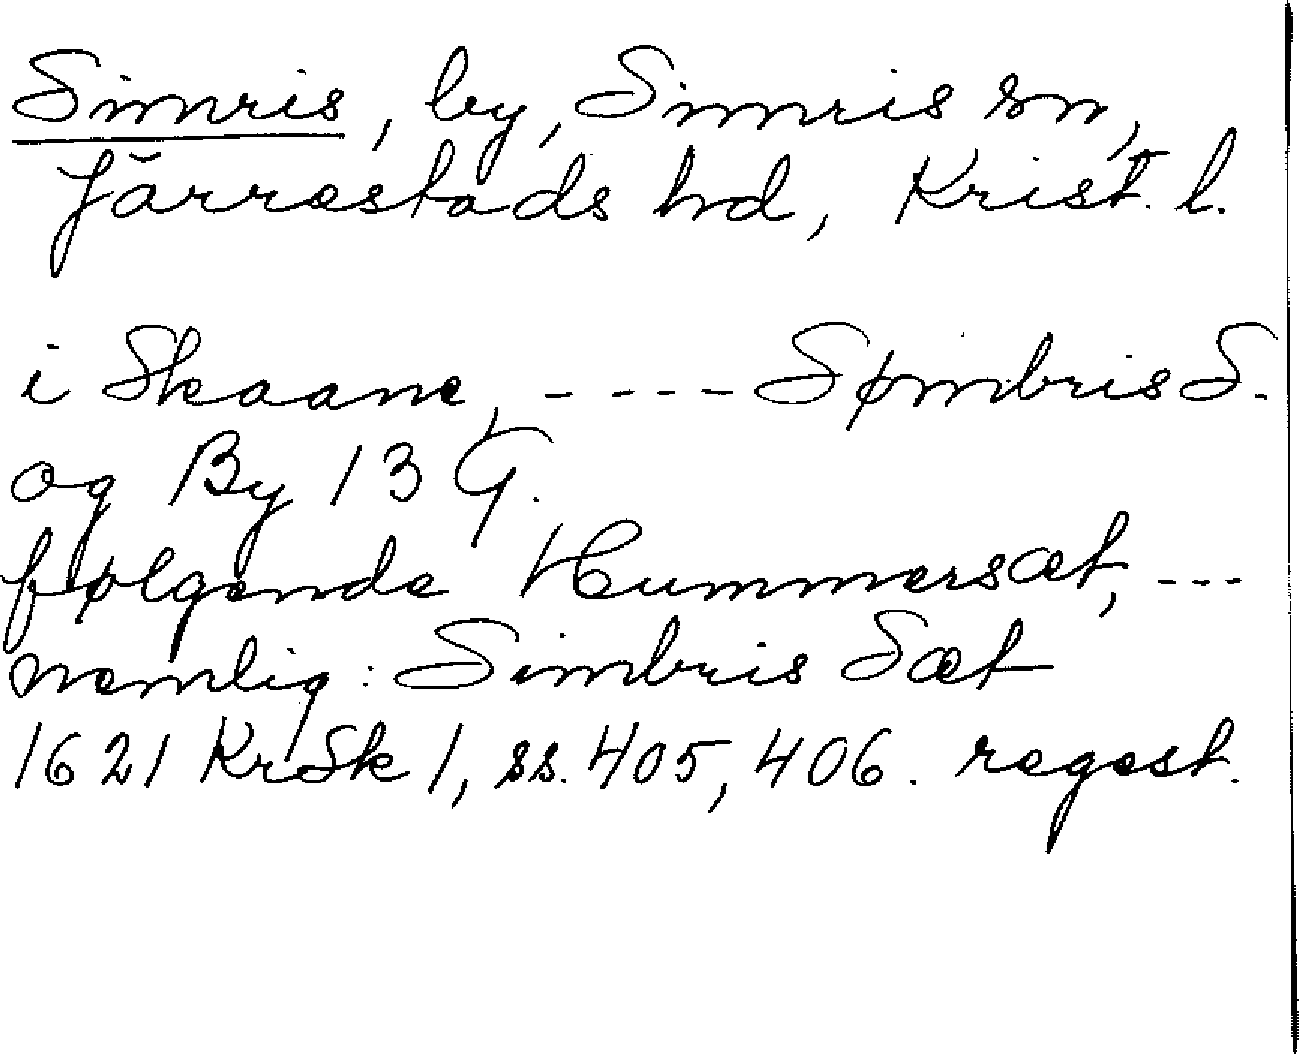 Simris, by, Simris sn,
Järrestads hd, Krist. l.
i Skaane, ---- Sømbris S.
og By 13 G.
følgende Hummersæt, ---
nemlig: Simbris Sæt
1621 KrSk 1, ss. 405, 406. regest.